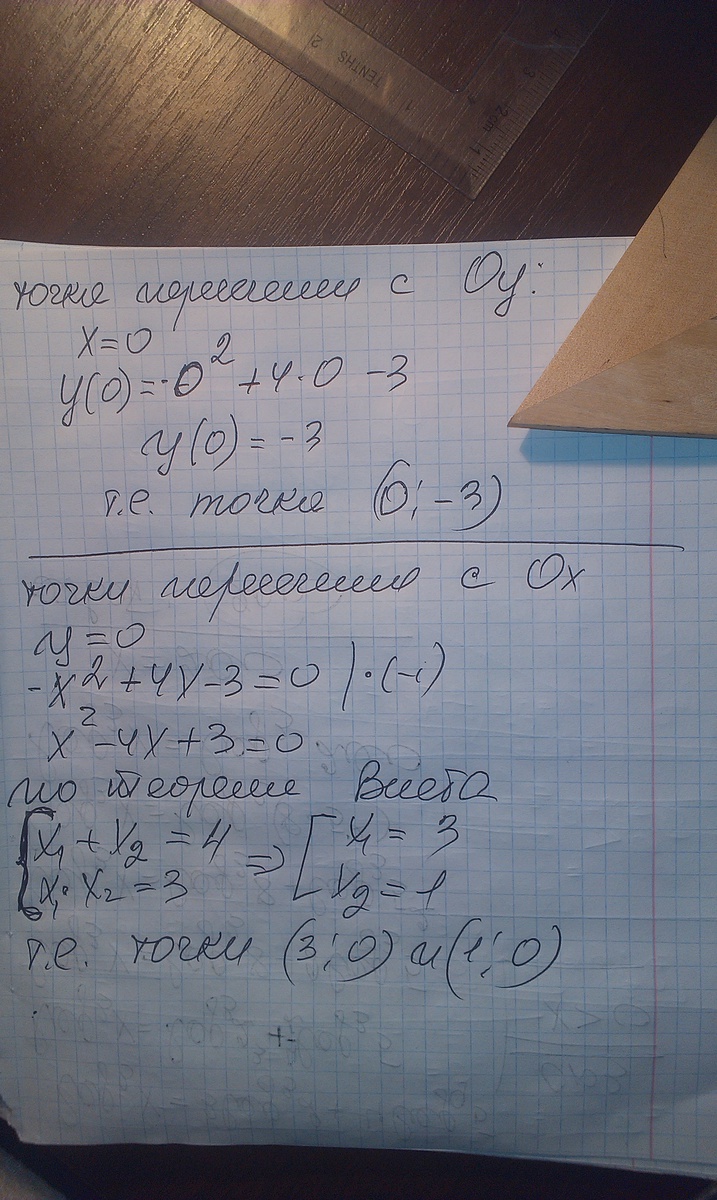 TENTHS
точка пересечения с Oy:
x=0
y(0)=-0²+4·0-3
y(0)=-3
т.е. точка (0;-3)
точки пересечения с Ox
y=0
-x²+4x-3=0 |·(-1)
x²-4x+3=0
по теореме Виета
{x₁+x₂=4 => [x₁=3
x₁·x₂=3 x₂=1
т.е. точки (3;0) и (1;0)